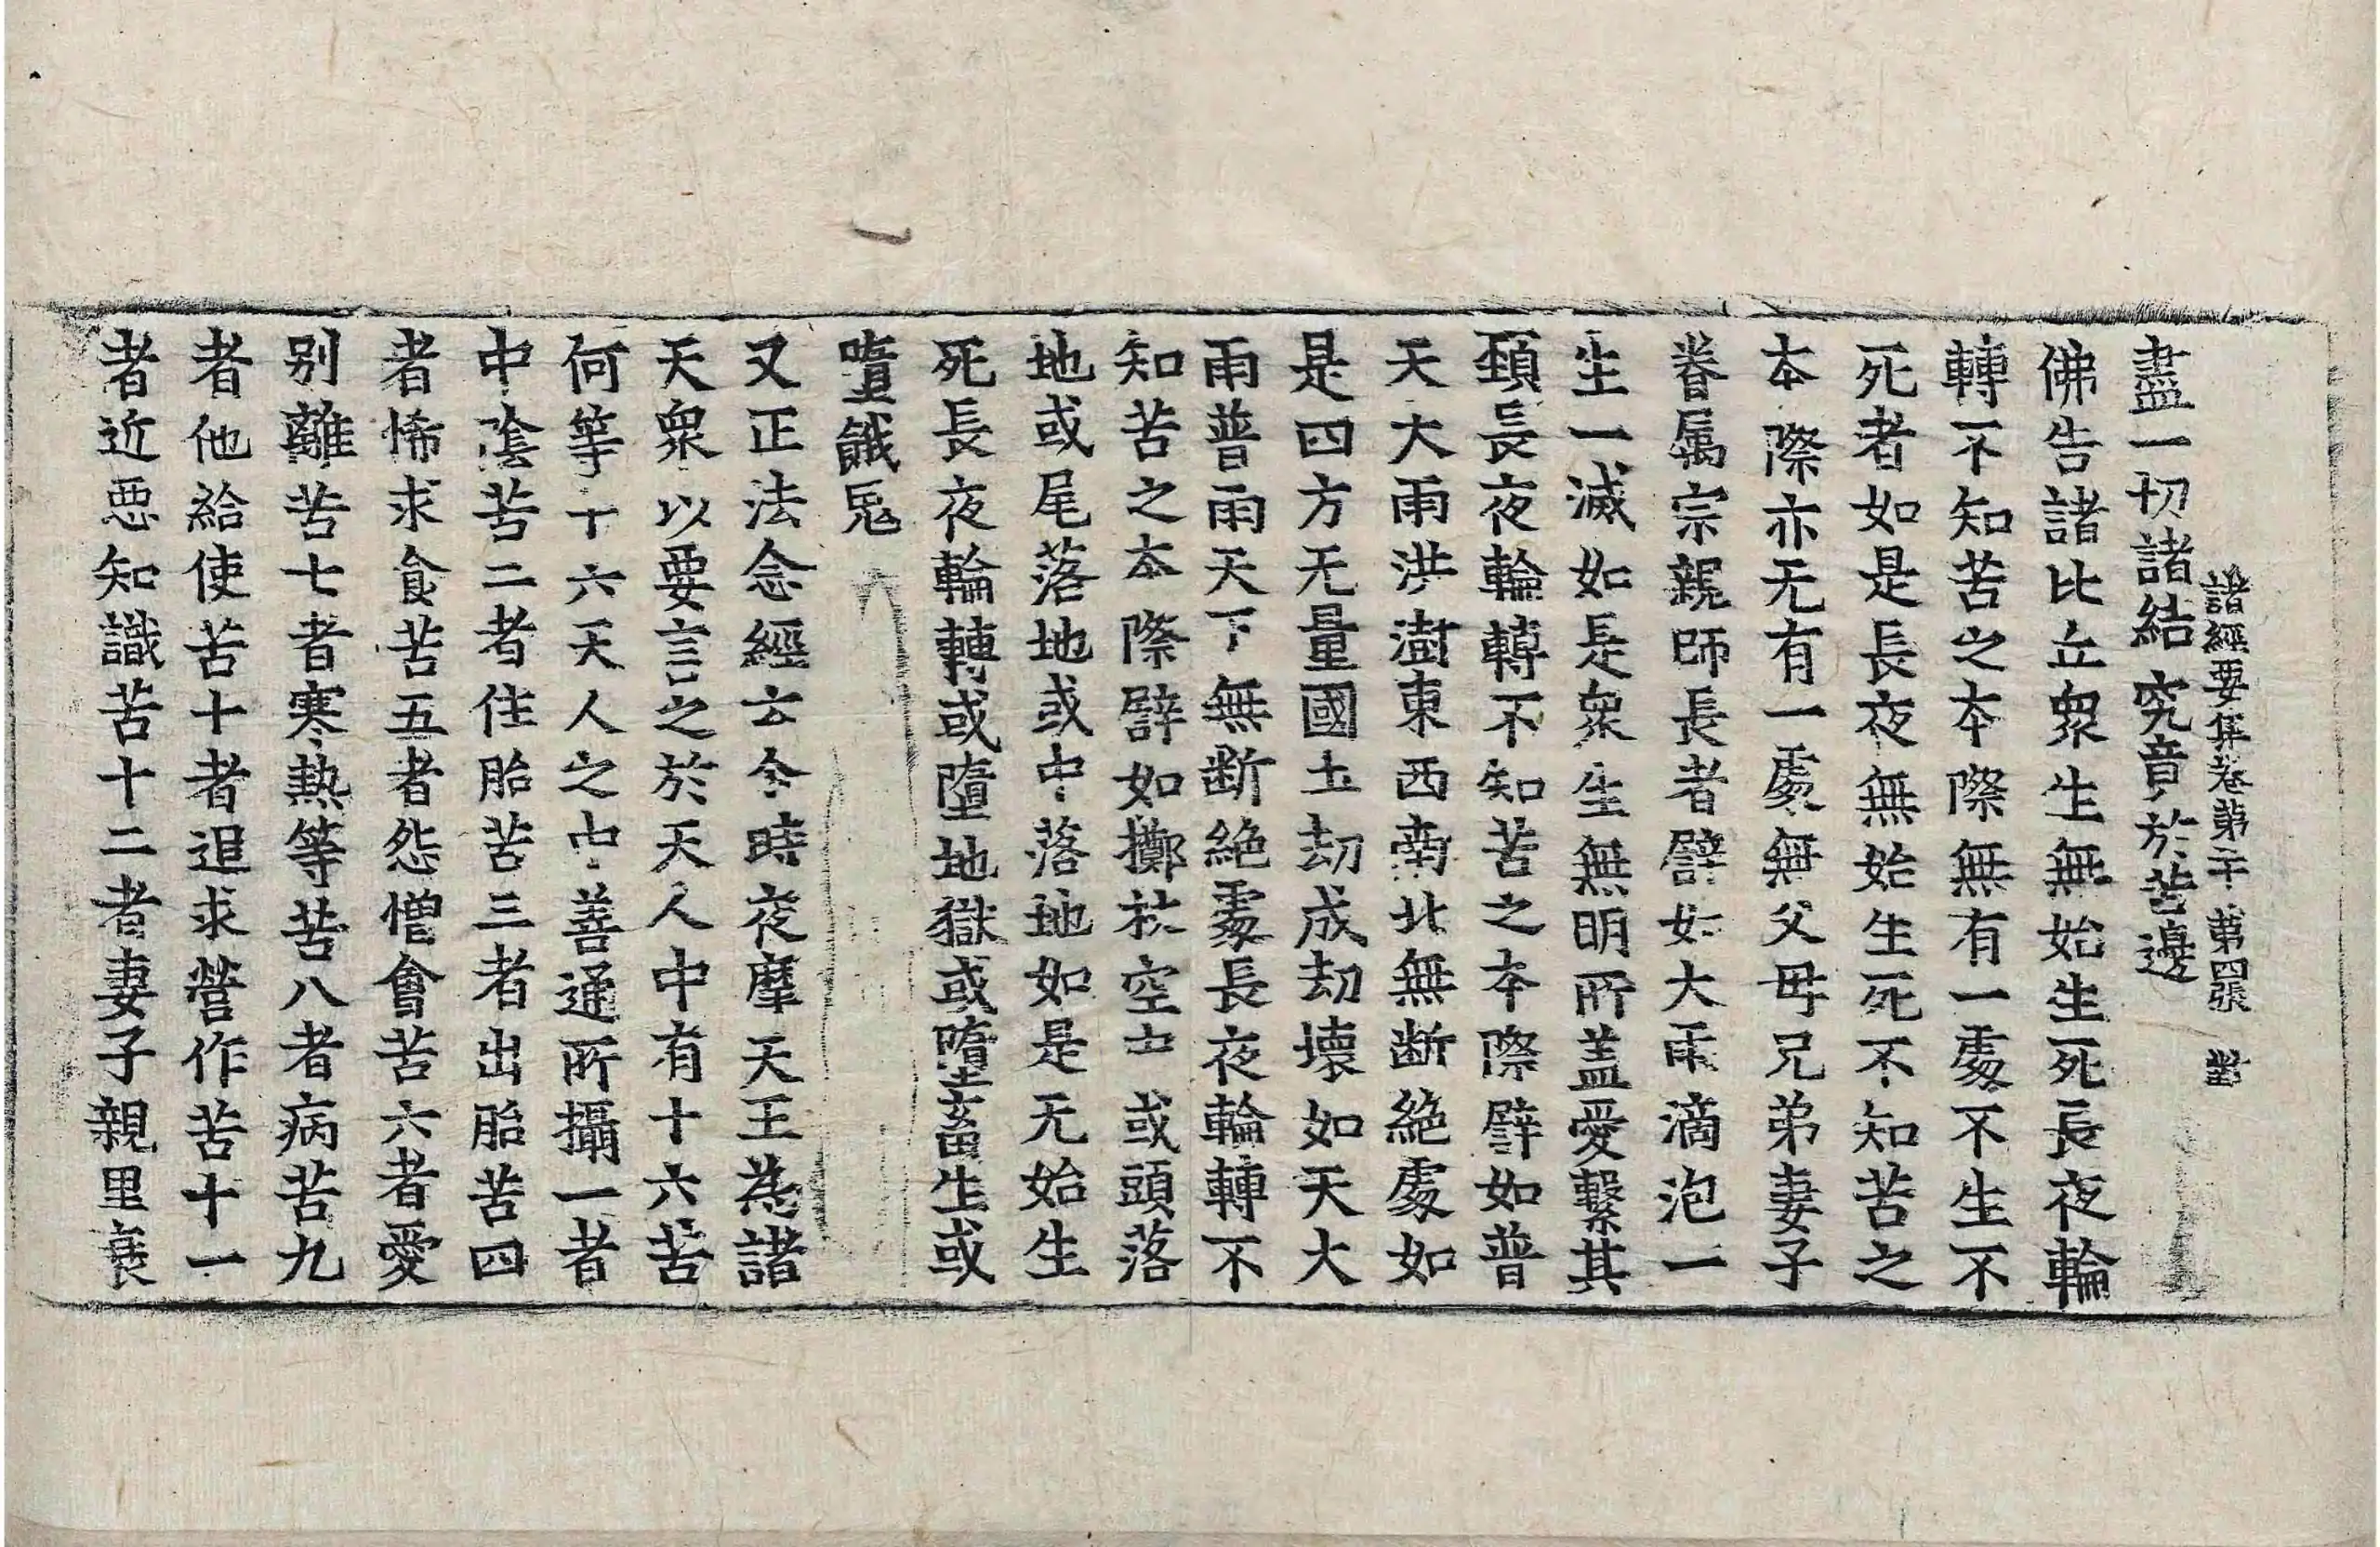 諸經要集卷第二十 第四張 對
盡一切諸結究竟於苦邊
佛告諸比丘眾生無始生死長夜輪
轉不知苦之本際無有一處不生不
死者如是長夜無始生死不知苦之
本際亦无有一處無父母兄弟妻子
眷属宗親師長者譬如大雨滴泡一
生一滅如是眾生無明所盖愛繫其
頚長夜輪轉不知苦之本際譬如普
天大雨洪澍東西南北無断絶處如
是四方无量國土劫成劫壞如天大
雨普雨天下無断絶處長夜輪轉不
知苦之本際譬如擲杖空中或頭落
地或尾落地或中落地如是无始生
死長夜輪轉或墮地獄或墮畜生或
墮餓鬼
又正法念經云令時夜摩天王為諸
天眾以要言之於天人中有十六苦
何等十六天人之中善道所攝一者
中陰苦二者住胎苦三者出胎苦四
者悕求食苦五者怨憎會苦六者愛
别離苦七者寒熱等苦八者病苦九
者他給使苦十者追求營作苦十一
者近惡知識苦十二者妻子親里衰